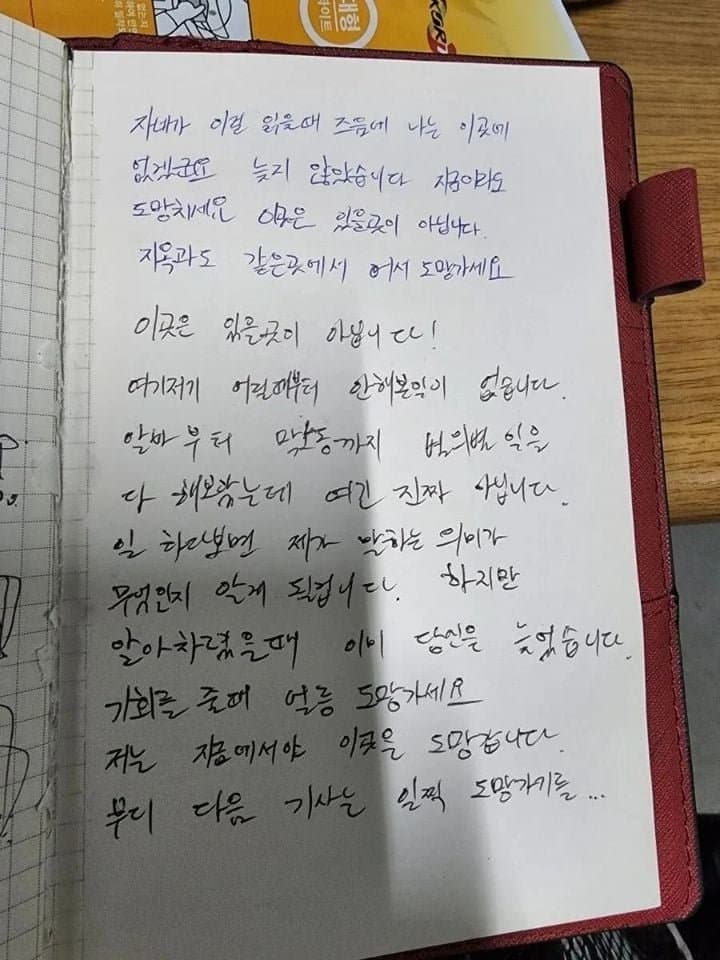 대형
KORT
자네가 이럴 읽을때 즈음에 나는 이곳에
없겠군요 늦지 않았습니다 지금이라도
도망치세요 이곳은 있을곳이 아닙니다.
지옥과도 같은곳에서 어서 도망가세요
이곳은 있을곳이 아닙니다!
여기저기 어릴때부터 안해본일이 없습니다.
알바부터 막노동까지 별의별 일을
다 해보았는데 여긴 진짜 아닙니다.
일 하다보면 제가 말하는 의미가
무엇인지 알게 될겁니다. 하지만
알아차렸을때 이미 당신은 늦었습니다.
기회를 줄때 얼릉 도망가세요
저는 지금에서야 이곳을 도망갑니다.
부디 다음 기사는 일찍 도망가기를...